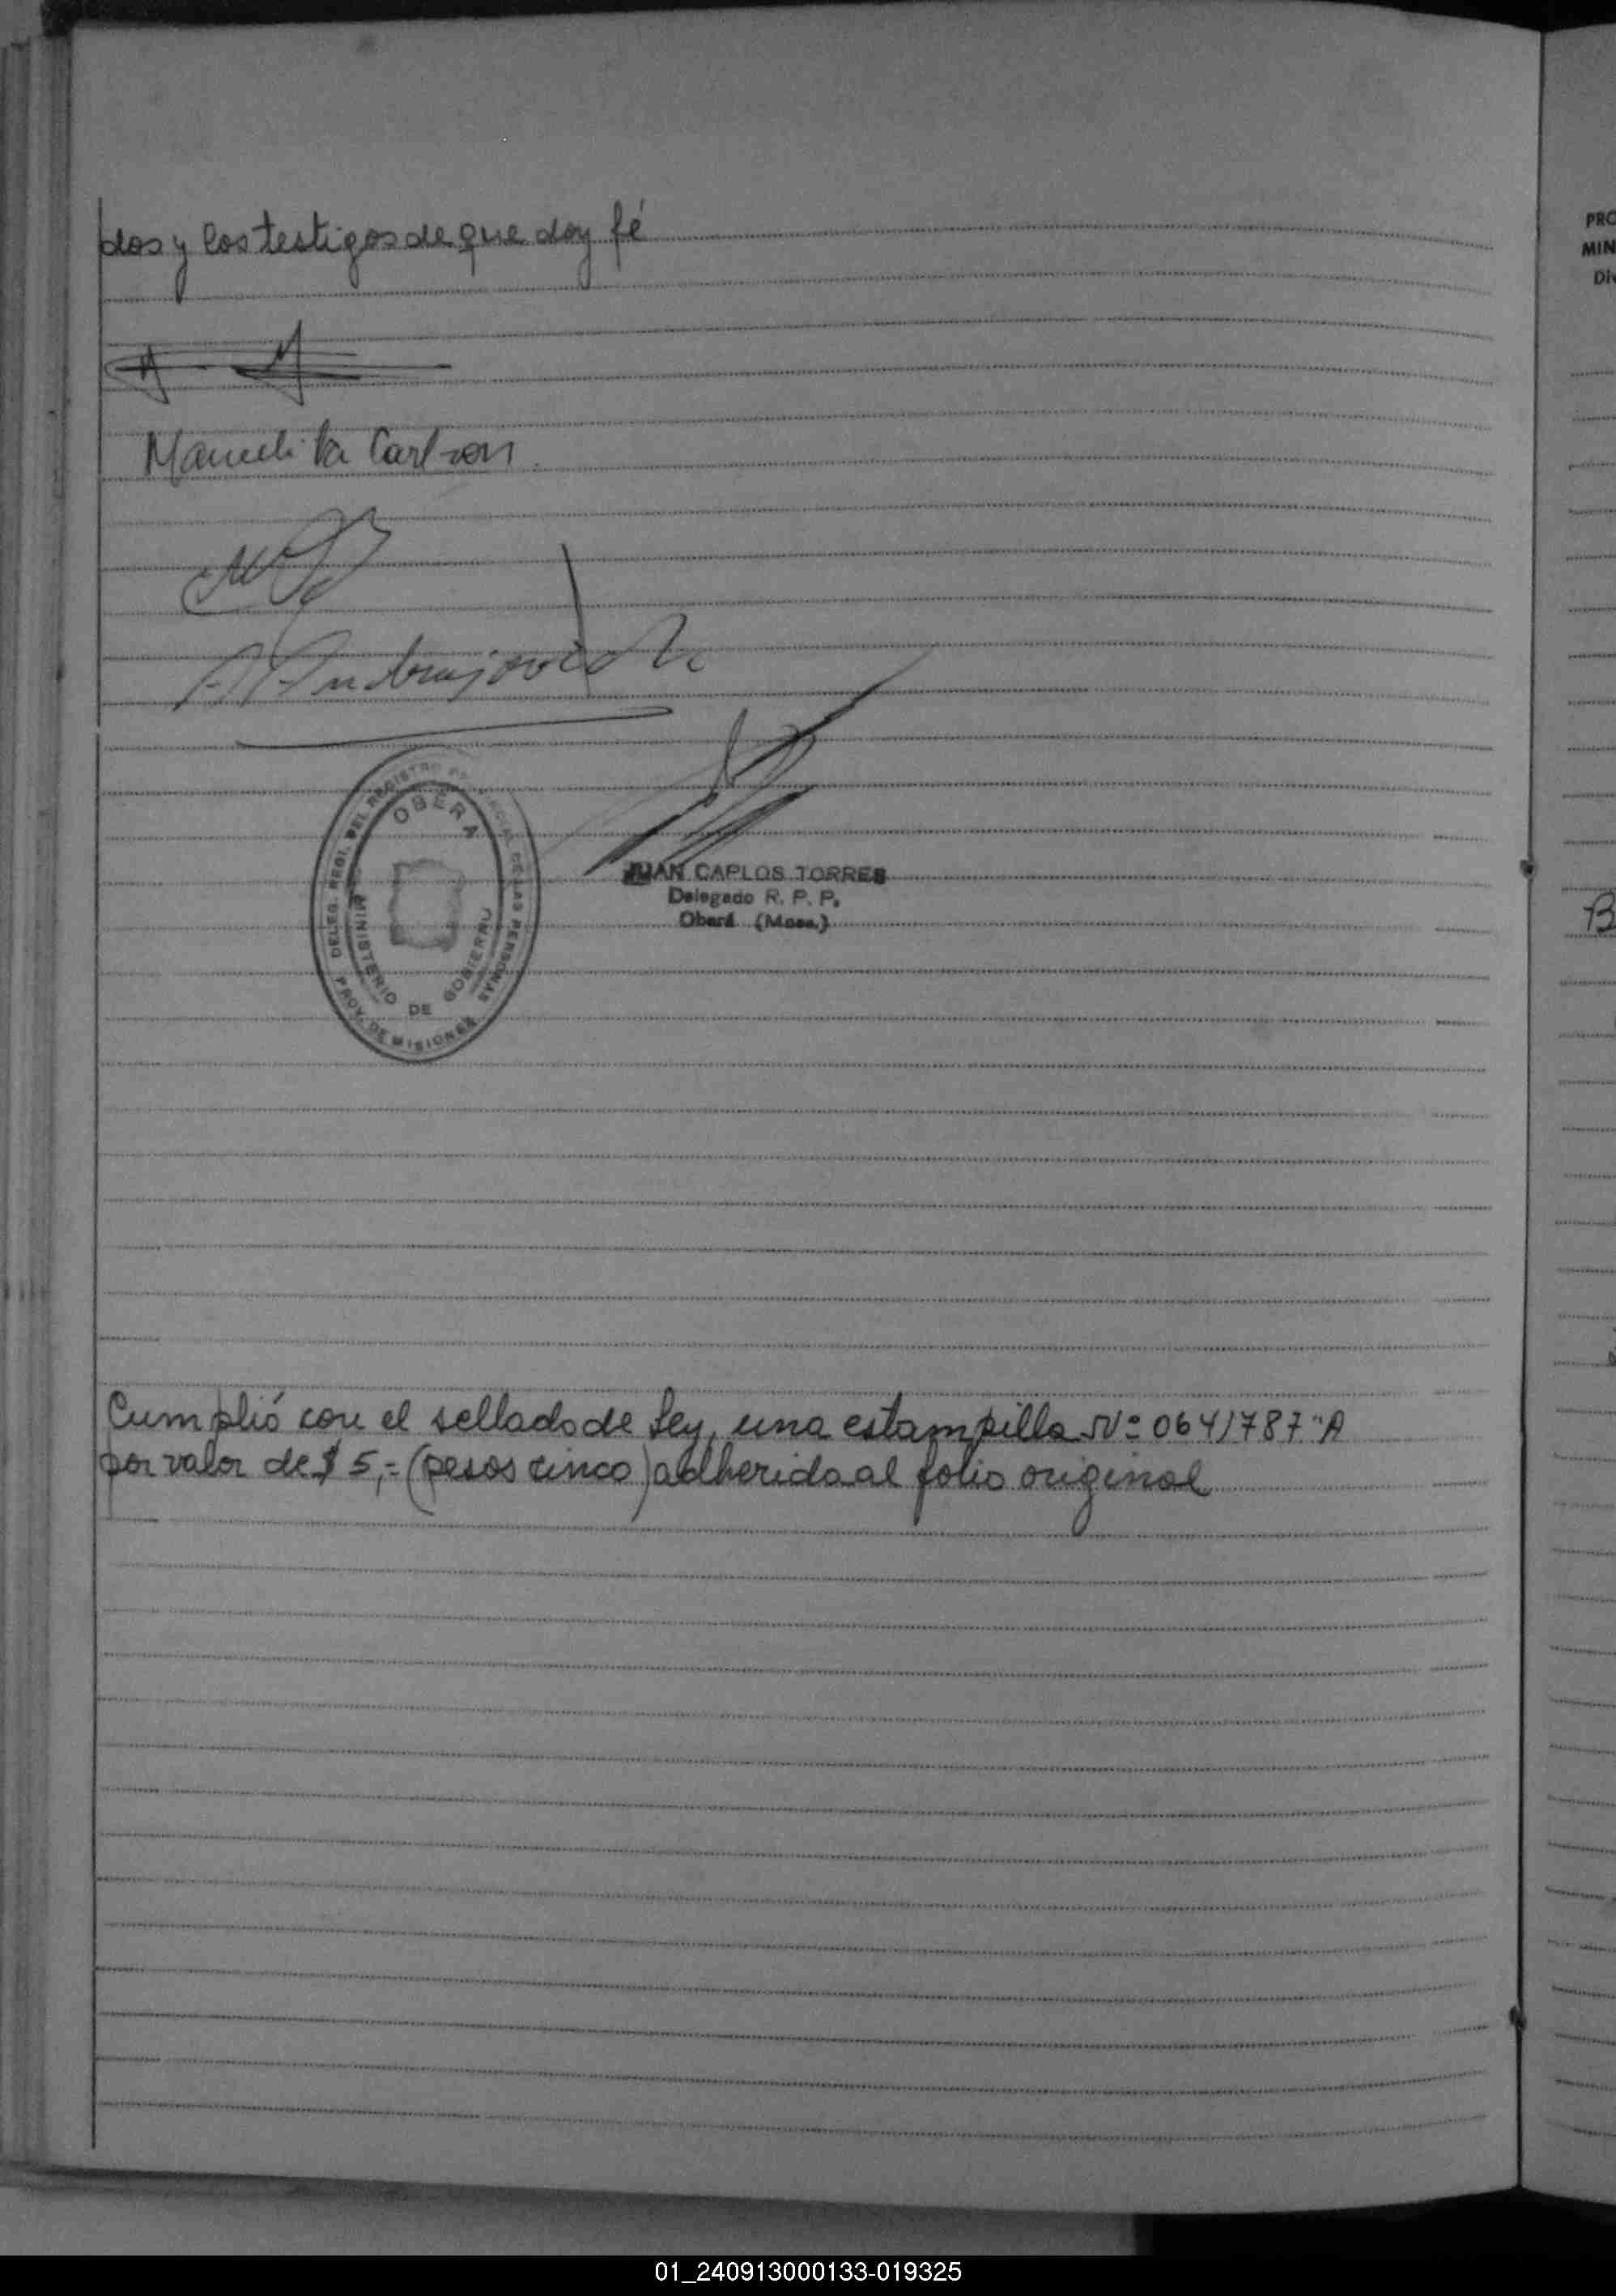 dos y los testigos de que doy fé
Manuelita Carlson
DELEG. REGI. DEL REGISTRO PROVINCIAL DE LAS PERSONAS
OBERA
MINISTERIO DE GOBIERNO
PROV. DE MISIONES
JUAN CARLOS TORRES
Delegado R. P. P.
Oberá (Mnes.)
Cumplió con el sellado de Ley, una estampilla Nº 0641787 "A
por valor de $ 5,= (pesos cinco) adherida al folio original
PRO
MIN
Div
B
01_240913000133-019325